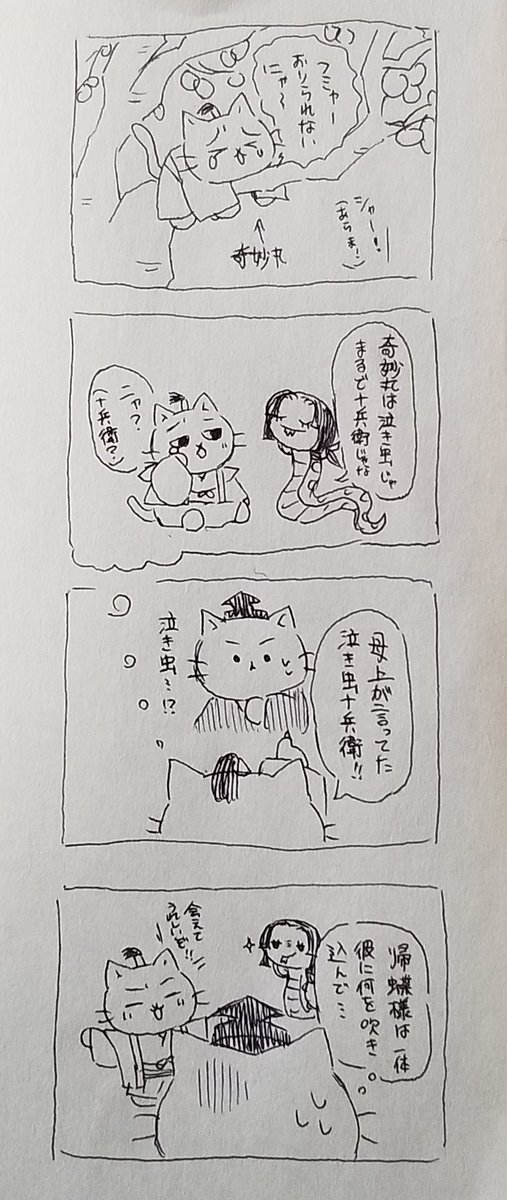 フミャー
おりられない
にゃ〜
シャー!
(あらま!)
奇妙丸
奇妙丸は泣き虫じゃ
まるで十兵衛じゃな
ニャ?
十兵衛?
母上が言ってた
泣き虫十兵衛!!
泣き虫…!?
帰蝶様は一体
彼に何を吹き
込んで…
会えて
うれしいぞ!!